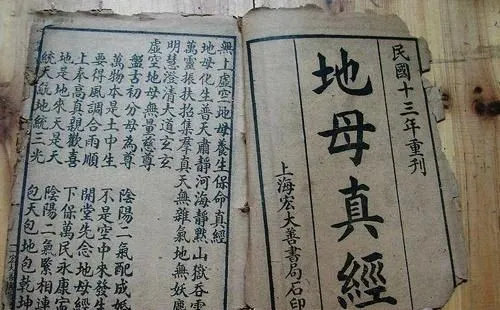 民國十三年重刊
地母真經
上海宏大善書局石印
無上虛空地母養生保命真經
地母化生普天肅靜河海靜默山嶽吞
萬靈振扶招集群真天無雜氣地無妖塵
明慧澄清大道玄玄
虛空地母無量慈尊
盤古初分母為尊 陰陽二氣配成婚
萬物本是土中生 不是空中來發生
要得風調合雨順 開堂先念地母經
上奉高真親歡喜 下保萬民永康寧
地是地來天是天 陰陽二氣緊相連
統天統地統三光 包天包地包乾坤